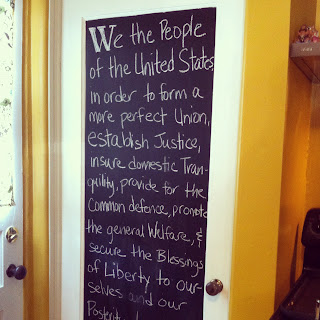 We the People
of the United States
in order to form a
more perfect Union,
establish Justice,
insure domestic Tran-
quility, provide for the
common defence, promote
the general Welfare, &
secure the Blessings
of Liberty to our-
selves and our
Posterity